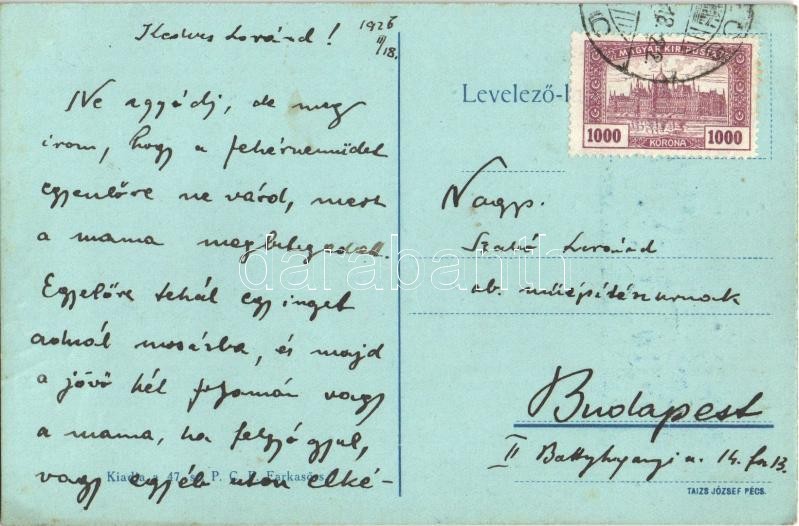 Kedves Loránd!
1926
II/18.
Ne agyádj, de meg
irom, hogy a fehérnemüdet
egyenlőre ne várd, mert
a mama megbetegedett.
Egyelőre tehát egy inget
adnál mosásba, és majd
a jövő hét folyamán vagy
a mama, ha felgyógyul,
vagy egyéb uton elké-
Kiadja a 47. sz. P. C. F. Farkasőrs
Levelező-
MAGYAR KIR. POSTA
1000
1000
KORONA
Nagys.
Szabó Loránd
ob. műépítészurnak
Budapest
II Batthyányi u. 14. fsz 13.
TAIZS JÓZSEF PÉCS.
darabanth